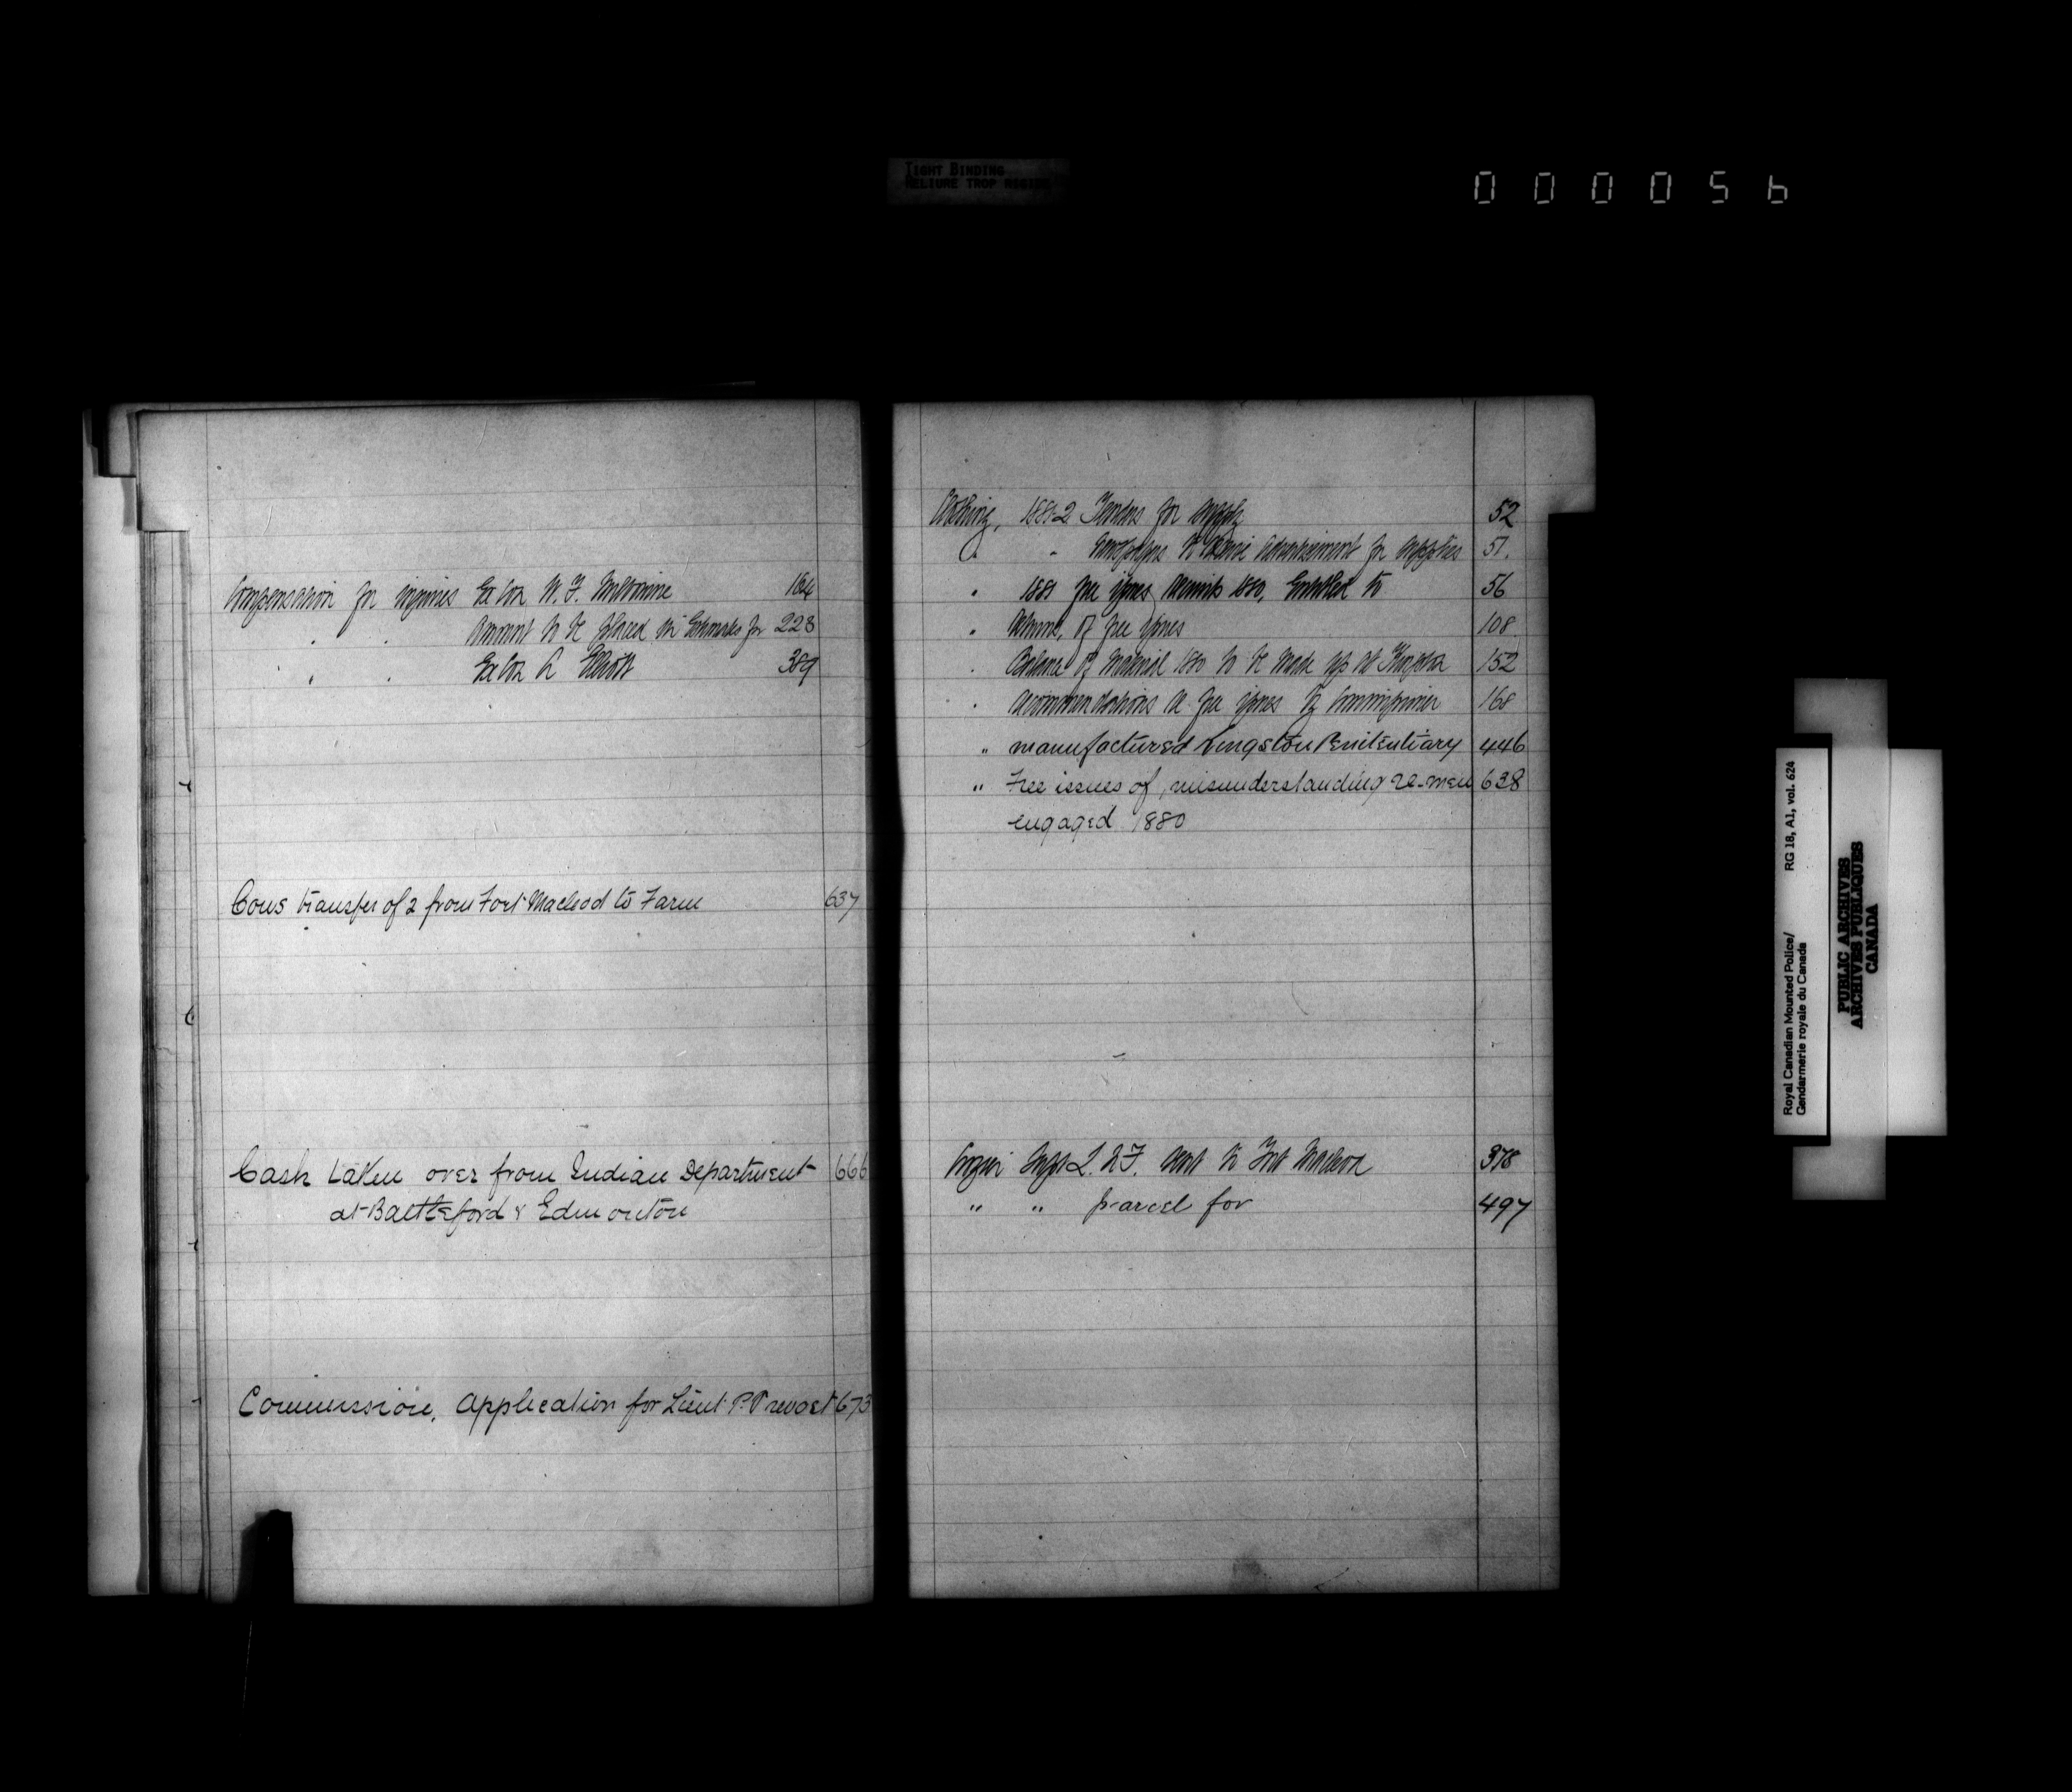 TIGHT BINDING
RELIURE TROP
000056
Compensation for injuries Ex Con W. F. 164
" " Amount to be placed in Estimates for 223
" " Ex Con A Elliott 389
Cows transfer of 2 from Fort Macleod to Farm 637
Cash taken over from Indian Department 666
at Battleford & Edmonton
Commission, Application for Lieut P. Prevost 673
Clothing, 1881-2 Tenders for supply 52
" " Newspapers to advertisement for supplies 51.
" 1881 free issues recruits 1880, Entitled to 56
" of free issues 108
" Balance of Material 1880 to be made up at 152
" Recommendations re free issues by Commissioner 168
" manufactured Kingston Penitentiary 446
" Free issues of, misunderstanding re-men 638
engaged 1880
Crozier Supt L. N. F. to Fort Macleod 378
" " parcel for 497
Royal Canadian Mounted Police/
Gendarmerie royale du Canada
RG 18, A1, vol. 624
PUBLIC ARCHIVES
ARCHIVES PUBLIQUES
CANADA